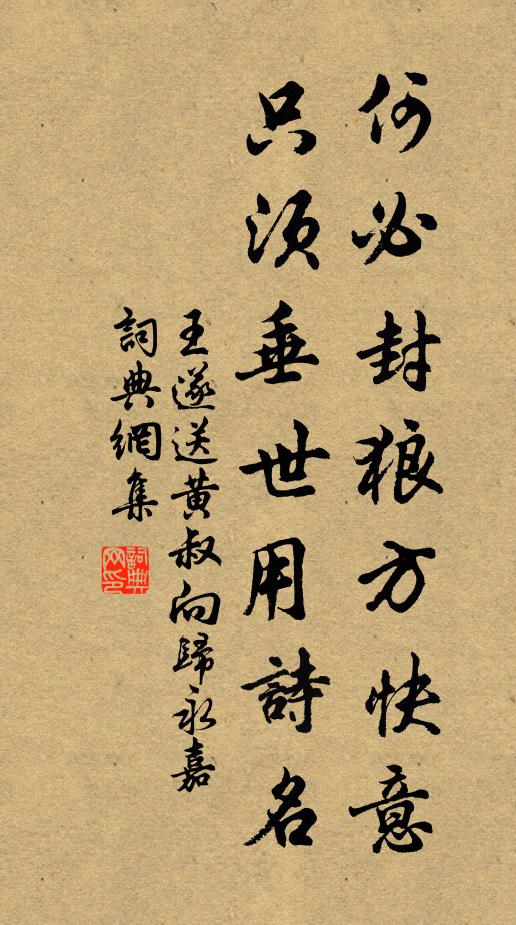 何必封狼方快意
只須垂世用詩名
王遂送黃叔向歸永嘉
詞典網集
詞典網印